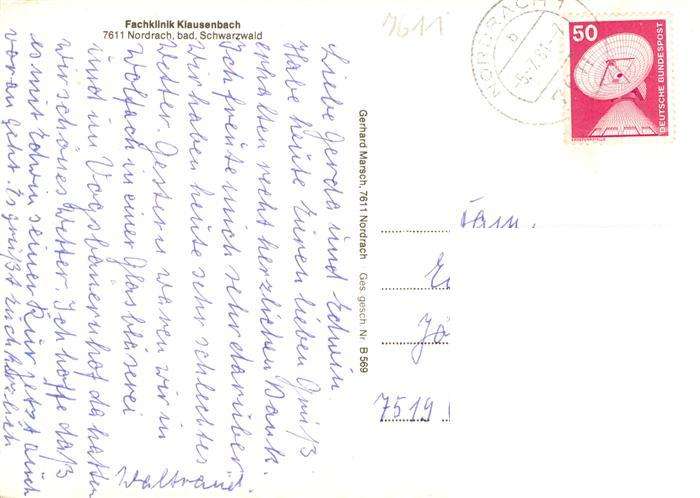 Fachklinik Klausenbach
7611 Nordrach, bad. Schwarzwald
7611
NORDRACH 1
50
DEUTSCHE BUNDESPOST
Liebe Gerda und Edwin.
Habe heute Euren lieben Gruß
erhalten recht herzlichen Dank.
Ich freute mich sehr darüber
Wir haben heute sehr schlechtes
Wetter. Gestern waren wir in
Wolfach in einer Glasbläserei
und im Vogsbauernhof da hatten
wir schönes Wetter. Ich hoffe daß
es mit Edwin seiner Kur jetzt auch
voran geht. Es grüßt Euch herzlich
Waltraud.
Gerhard Marsch, 7611 Nordrach Ges. gesch. Nr. B 569
Fam.
7519